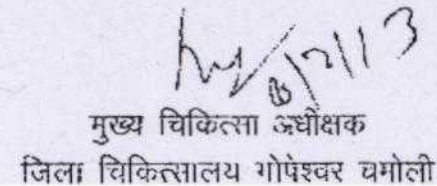 8/2/13
मुख्य चिकित्सा अधीक्षक
जिला चिकित्सालय गोपेश्वर चमोली